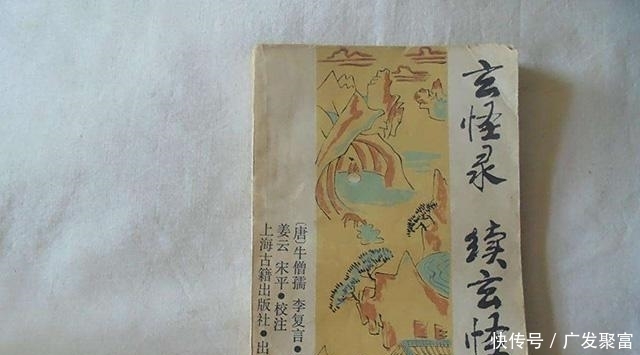 玄怪录 续玄怪
[唐]牛僧孺 李复言·
姜云 宋平·校注
上海古籍出版社·出
快传号/广发聚富